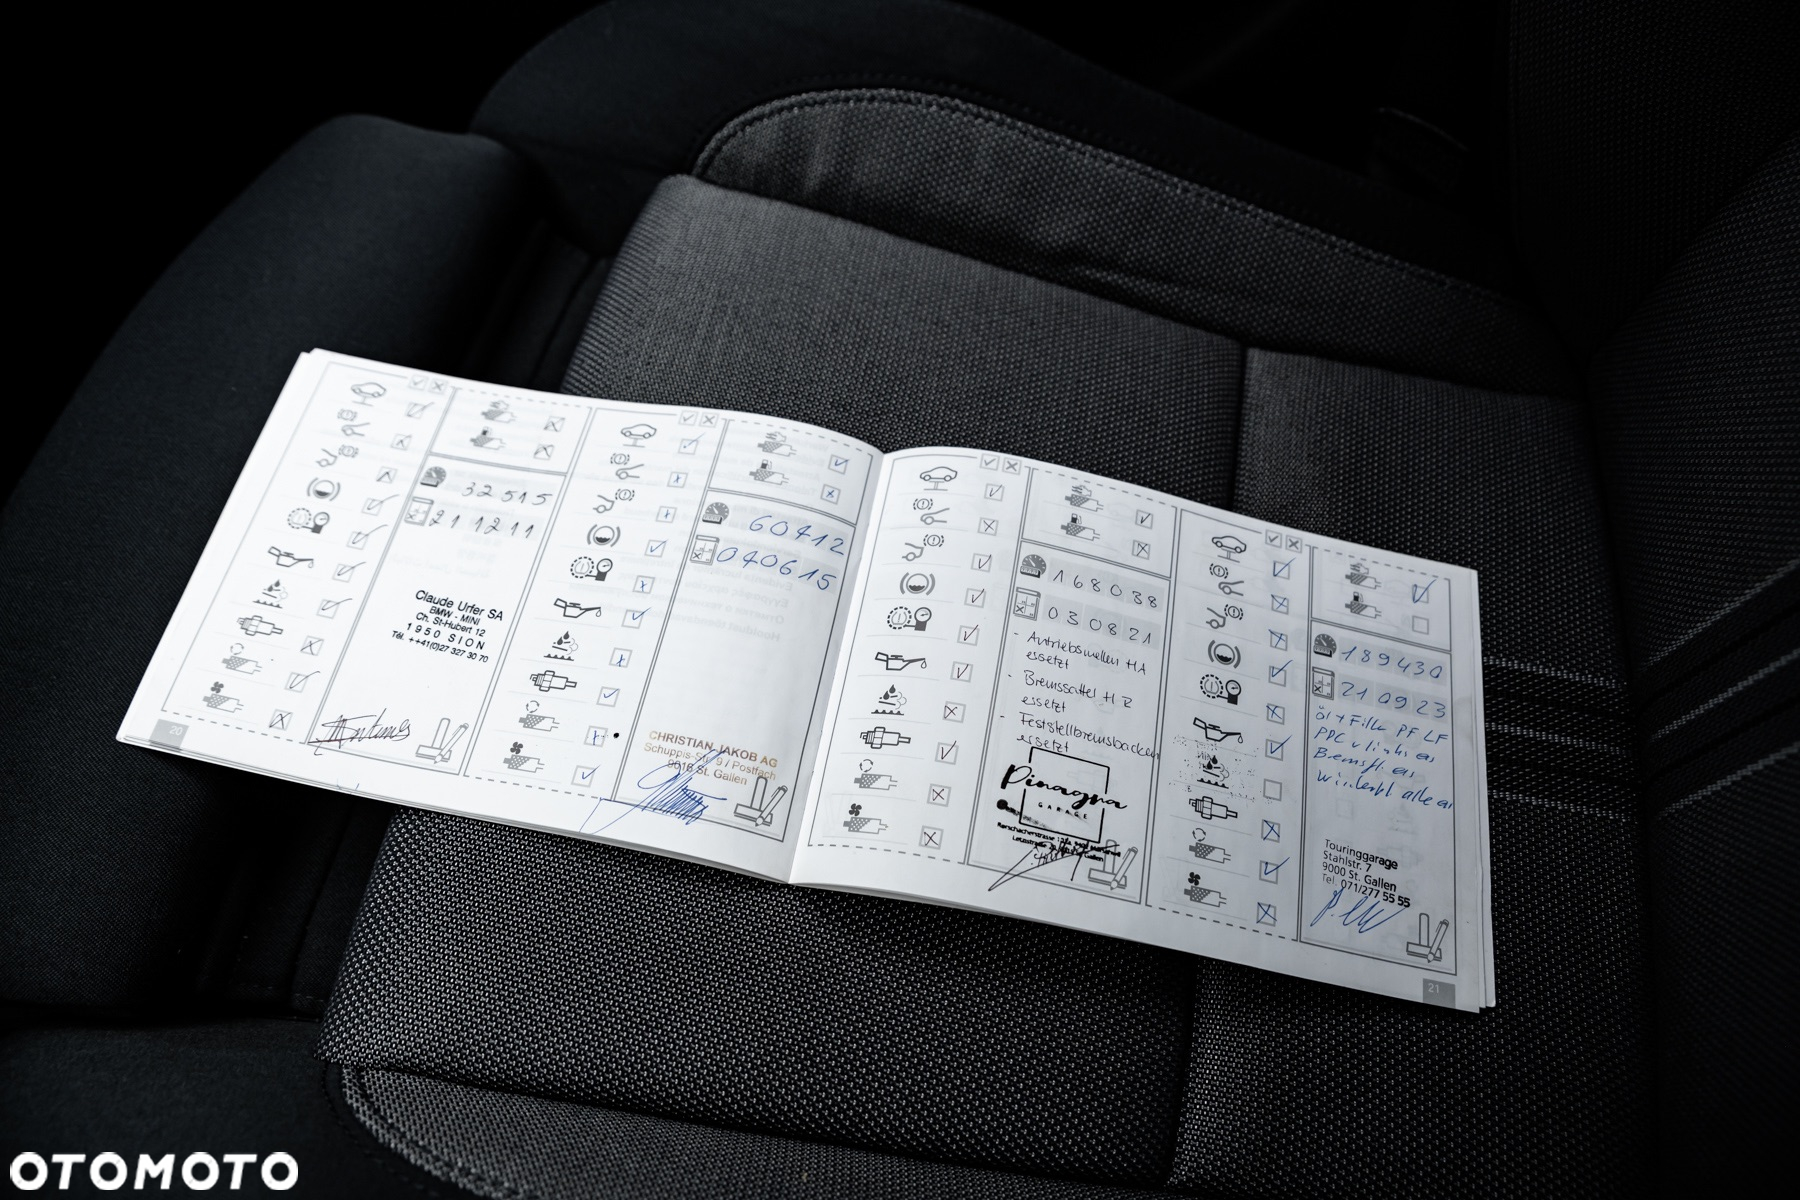 32515
211211
Claude Urfer SA
BMW - MINI
Ch. St-Hubert 12
1950 SION
Tél. ++41(0)27 327 30 70
20
60412
040615
CHRISTIAN JAKOB AG
Schuppis-Str. 9 / Postfach
9016 St. Gallen
168038
030821
- Antriebswellen HA
ersetzt
- Bremssattel H R
ersetzt
- Feststellbremsbacken
ersetzt
Pinagna
GARAGE
189430
210923
öl + Filter PF LF
Touringgarage
Stahlstr. 7
9000 St. Gallen
Tel. 071/277 55 55
21
OTOMOTO